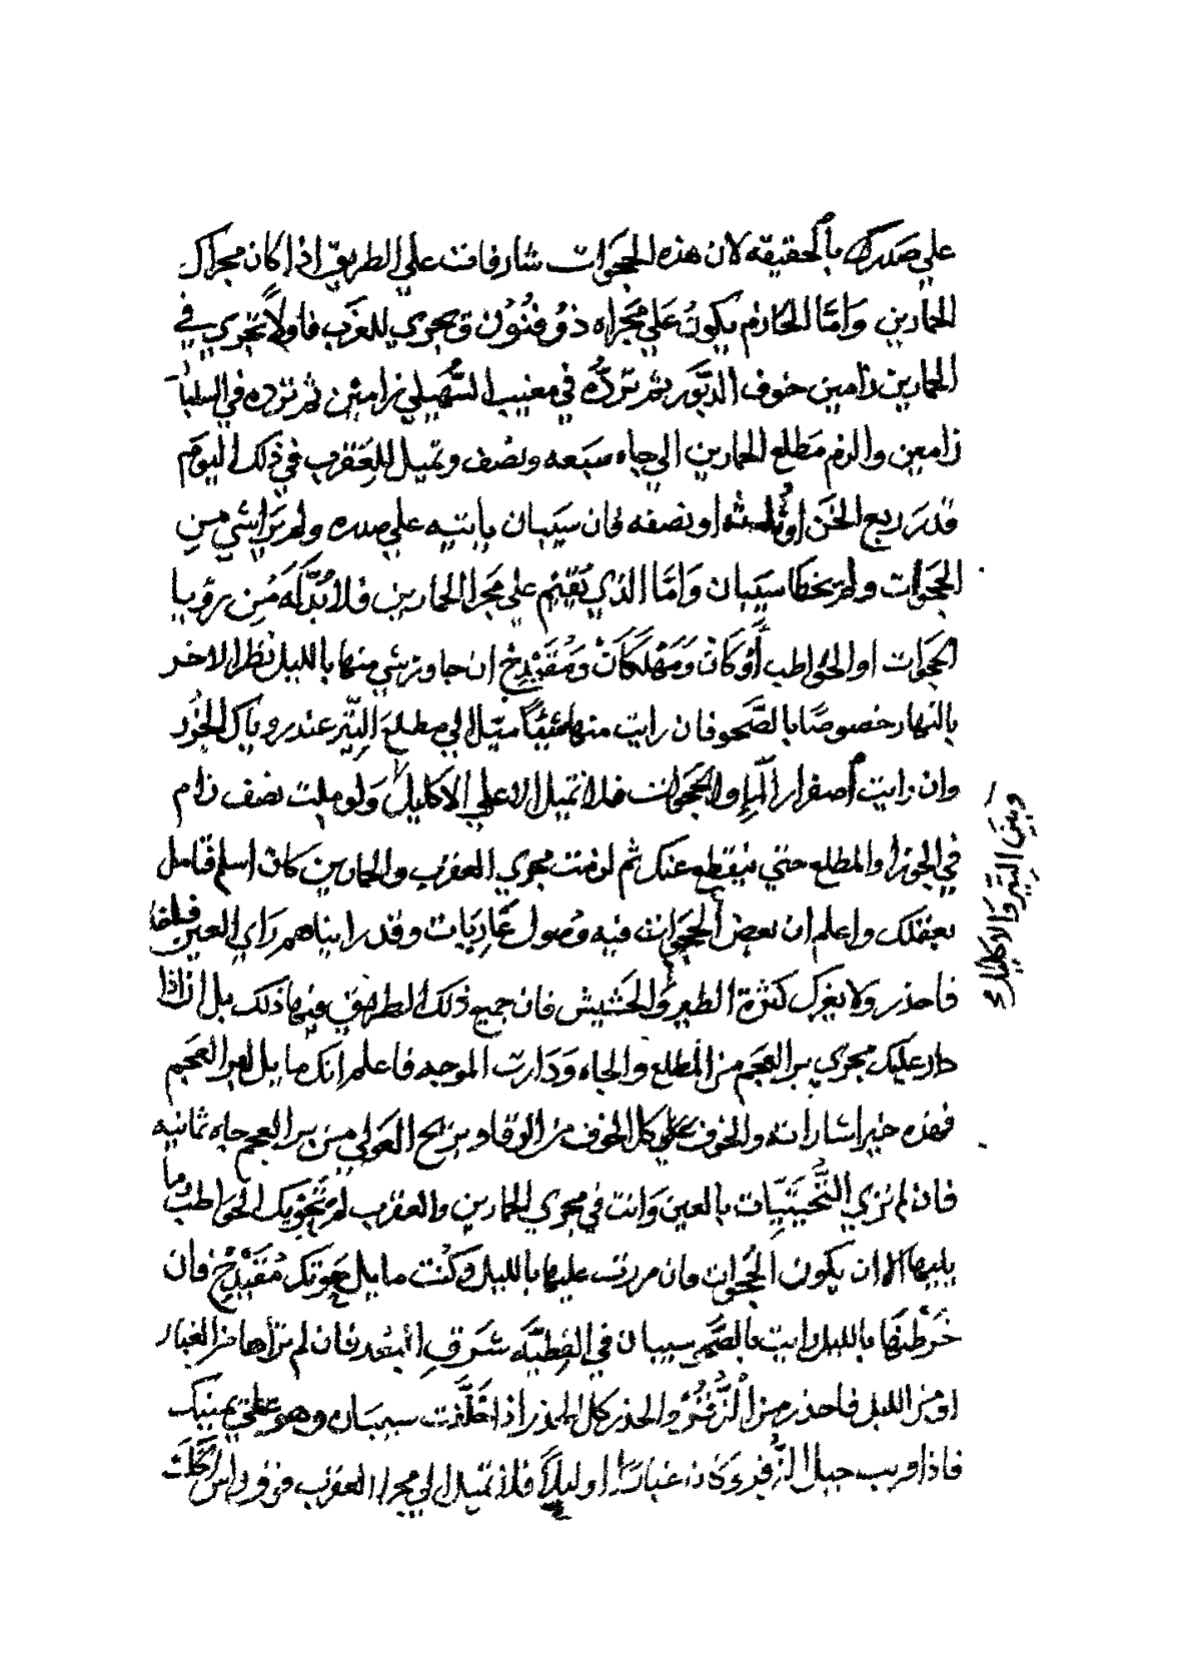 علي صَدرك بالحقيقه لان هذه الججوات شارفات علي الطريق اذا كان مجراك
الحمارين وَامَّا الحازم يكون علي مَجراه ذو فنُوُن ق يجري للغَرب فاولاً تجري في
الحمارين زامين خوف الدبَّور ثم تردُّه في مغيب السُّهيلي زامين ثم ترده في السلبار
زامين والزم مَطلع الحمارين الي جاه سَبَعه ونصف وتميل للِعَقرب في ذلك اليوَم
قدرَ ربع الخَن او ثُلثه او نصفه فان سَيبان ياتيه علي صدره ولم يَرَا شي مِن
الججَوات ولم يخطا سيَبان وَامَّا الذي يَقيم علي مَجرا الحمارين فلا بُدَّ لَهَ مِن رؤيا
الججوات او الحواطب أَوَكَان وَمَهْلَكَان وَمُقَيْدِح ان جاوز شي منها بالليل نظر الاخر
بالنهار خصوصًا بالصَّحو فان رايت منها شيئاً ميّل الي مطلعَ التِيّر عند روياك الجُزُر
وان رايت اصفرار المإِ والججوات فلا تميل الا علي الاكليل وَلو ملت نصف زام
في الجوزا والمطلع حتي ينقطع عنك ثم لزمت مجري العقرب والحمارين كان اسلم فتامل
بعقلك واعلم ان بعض الججوات فيه وصُول غَاربَات وقد رايناهم رَاي العين
فاحذر ولا يغرك كثرة الطير والحَشيش فان جميع ذلك الطريق فيها ذلك بل ان اذا
دار عليك مجري بر العجَم من المطلع والجاه وَدَارت الموجه فاعلم انك مايل لبر العجم
فهذه خير اشارات والخوف كل الخوف من الوقاد بريح العَولي مِن بر العجم جاه ثمانيه
فان لم تري التُّحَيتيّات بالعين وَانت في مجري الحمارين والعقرب لم تحويك الحَواطب وما
يليها الا ان يكون الججوات وان مررت عليها بالليل وكنت مايل مُقَيْدِح فان
خَرَطتها بالليل رايت بالصَّحو سيبان في القِطيَّه شرَقِ ابْعد فان لم تراها من الغبار
او من الليل فاحذر من الزُّقُر والحذر كل الحذر اذا خَلَّفت سيبَان وهو علي يمينك
فاذا قريب جبل الزُّقر وكان غبارًا او ليلاً فلا تميل الي مجرا العقرب
وبين التِيّر والاكليل